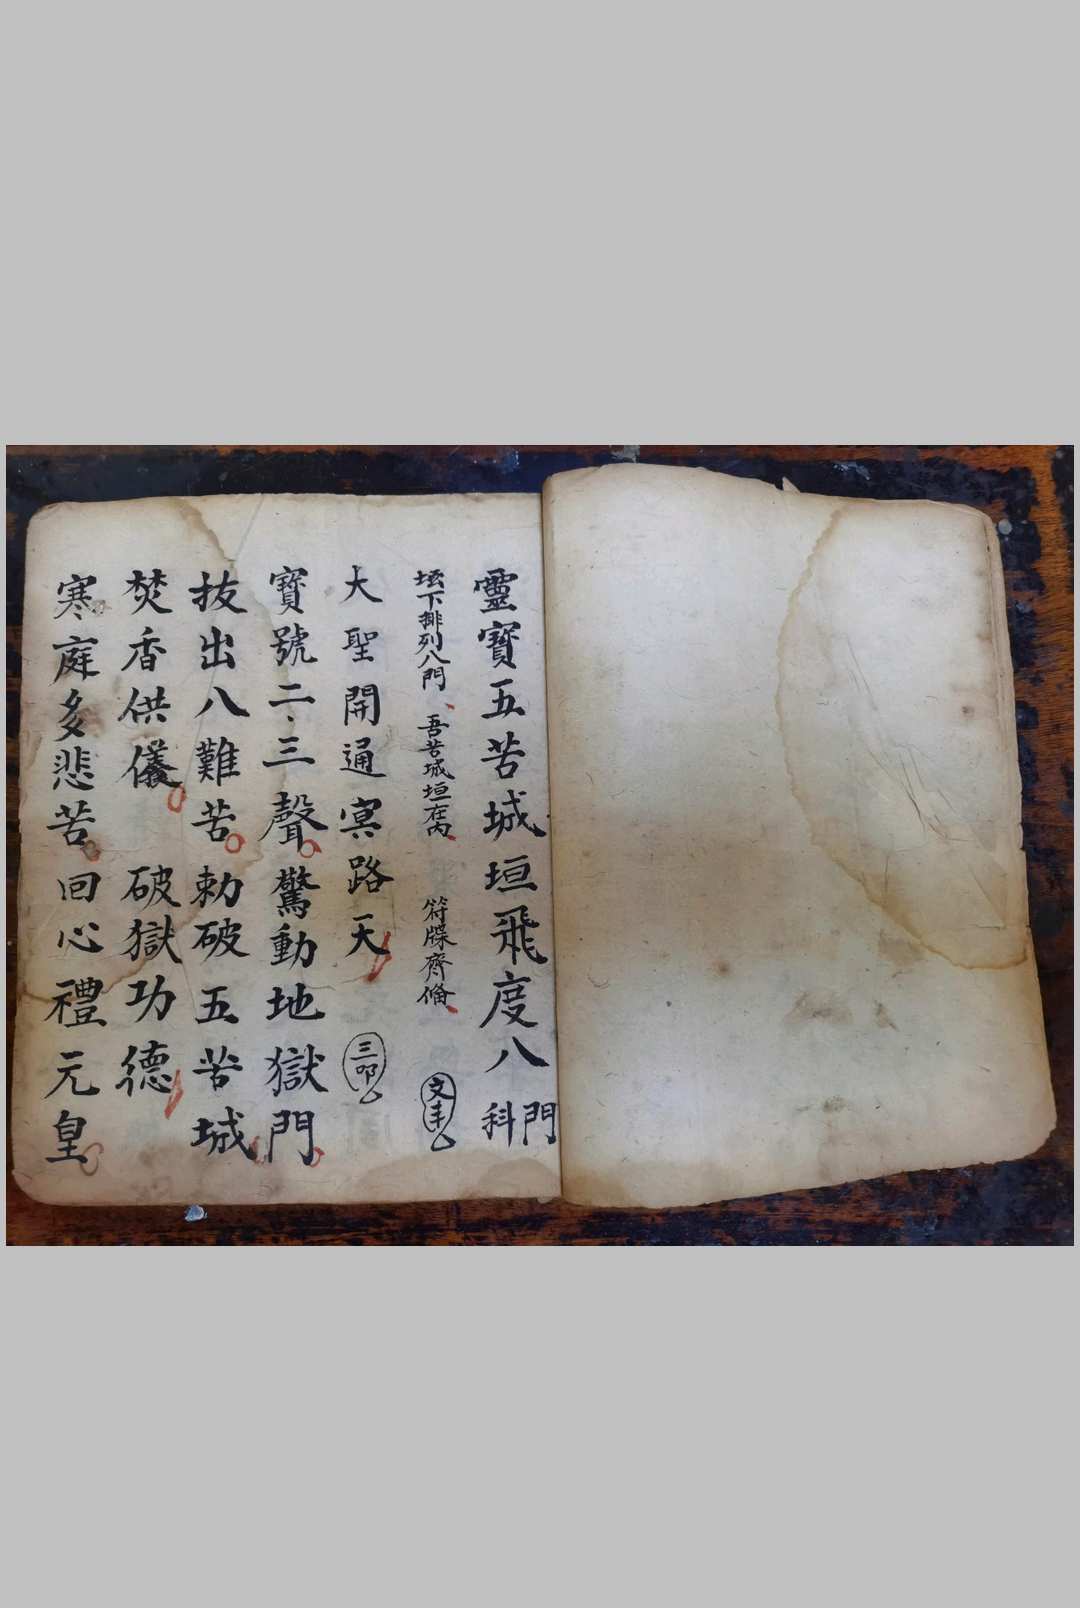 靈寶五苦城垣飛度八門科
坛下排列八門 吾苦城垣在内 符牒齊偹
大聖開通冥路天 三叩
寶號二三聲驚動地獄門
拔出八難苦勅破五苦城
焚香供儀破獄功德
寒庭多悲苦回心禮元皇